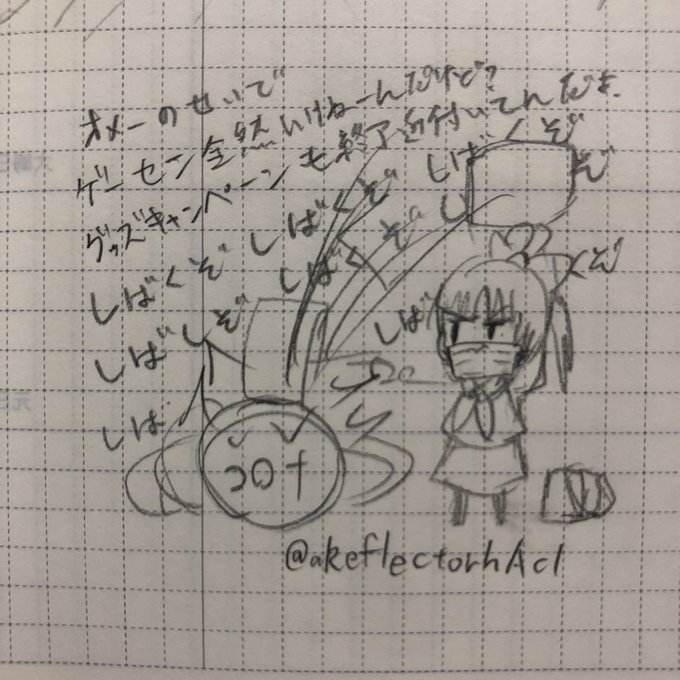 オメーのせいで
ゲーセン全然いけねーんだけど?
グッズキャンペーンも終了近付いてんだよ
しばくぞ
しばくぞ しばくぞ
しばくぞ
しばしぞ
しば
しば
くぞ
コロナ
@akeflectorhAcl